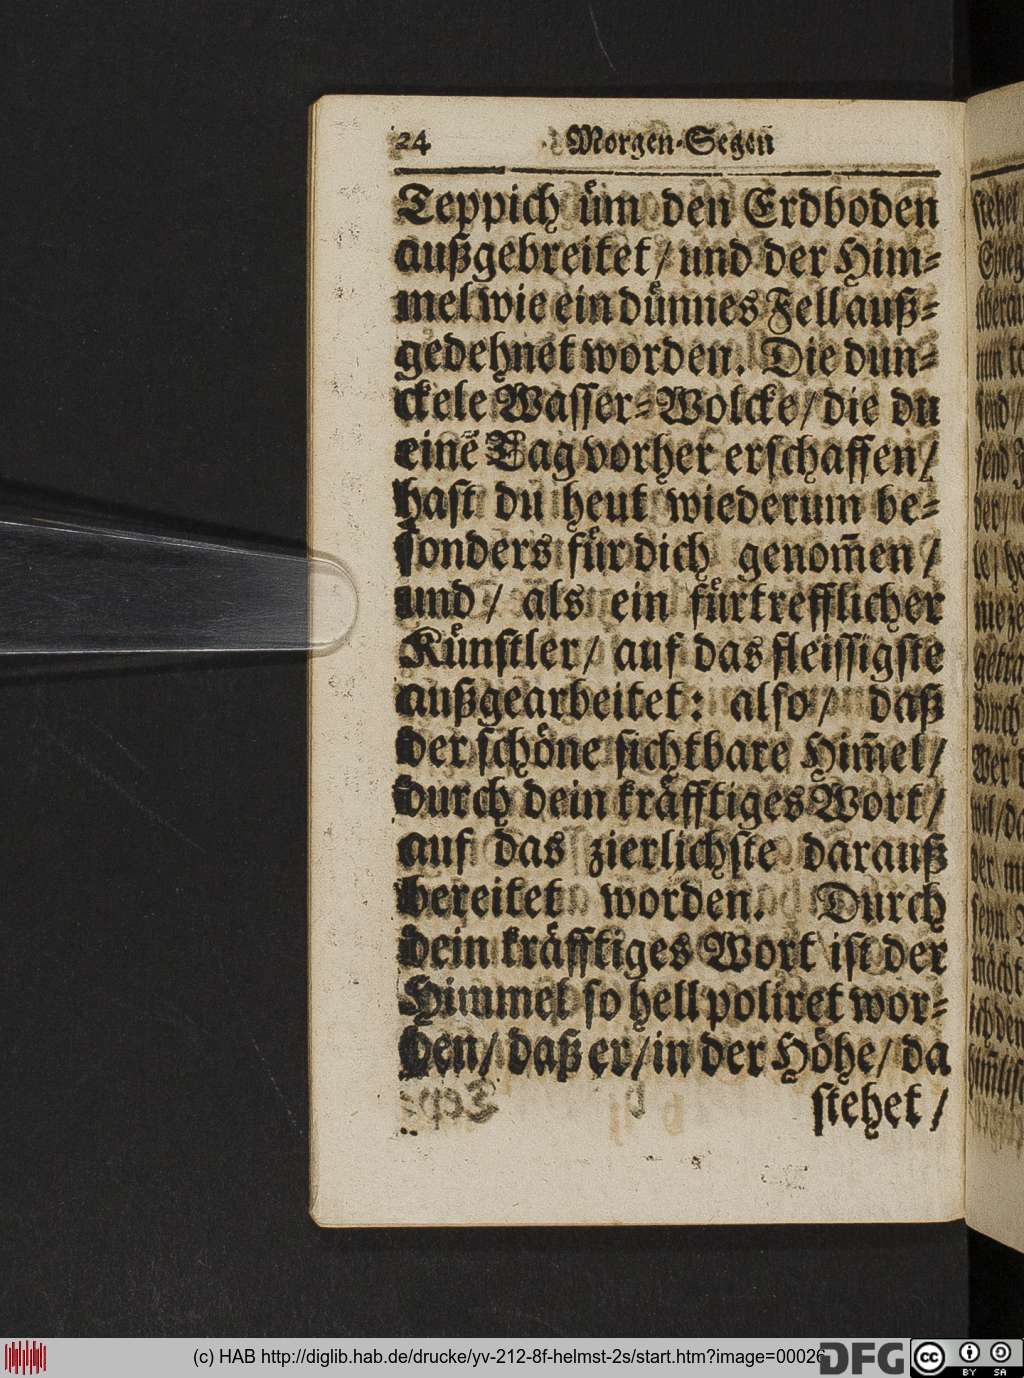 24 Morgen-Segen
Teppich üm den Erdboden
außgebreitet / und der Him-
mel wie ein dünnes Fell auß-
gedehnet worden. Die dun-
ckele Wasser-Wolcke / die du
einē Tag vorher erschaffen /
hast du heut wiederum be-
sonders für dich genom̄en /
und / als ein fürtrefflicher
Künstler / auf das fleissigste
außgearbeitet: also / daß
der schöne sichtbare Him̄el /
durch dein kräfftiges Wort /
auf das zierlichste darauß
bereitet worden. Durch
dein kräfftiges Wort ist der
Himmel so hell poliret wor-
hen / daß er / in der Höhe / da
stehet /
(c) HAB http://diglib.hab.de/drucke/yv-212-8f-helmst-2s/start.htm?image=00026
DFG
cc
BY SA